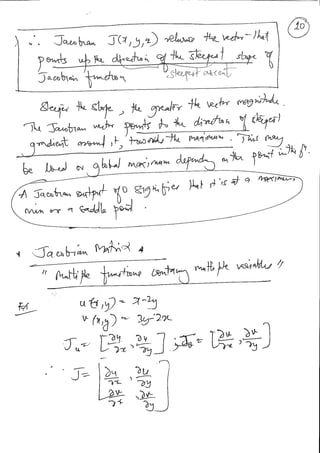 10
∴ Jacobian J(x, y, z) returns the vector that
points up the direction of the steepest slope of
Jacobian function
steepest ascent.
Steeper the slope, the greater the vector magnitude.
The Jacobian vector points to the direction of steepest
gradient around it, towards the maximum. This may
be local or global maximum depending on the point in the fn.
A Jacobian output of 0 signifies that it is at a maximum,
min or a saddle point.
* Jacobian Matrix
" Multiple functions containing multiple variables "
u(x,y) = x-2y
v(x,y) = 3y-2x
Ju = [∂u/∂x , ∂u/∂y] ; Jv = [∂v/∂x , ∂v/∂y]
∴ J = [∂u/∂x ∂u/∂y
∂v/∂x ∂v/∂y]